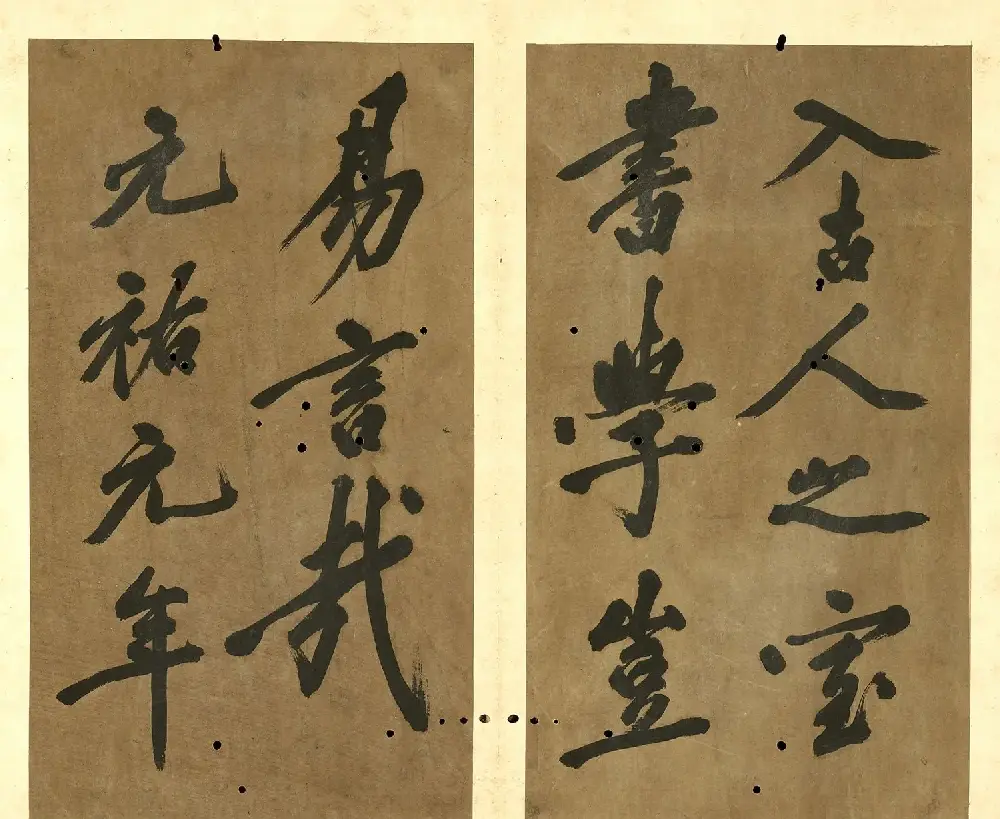 入古人之室
書學豈
易言哉
元祐元年